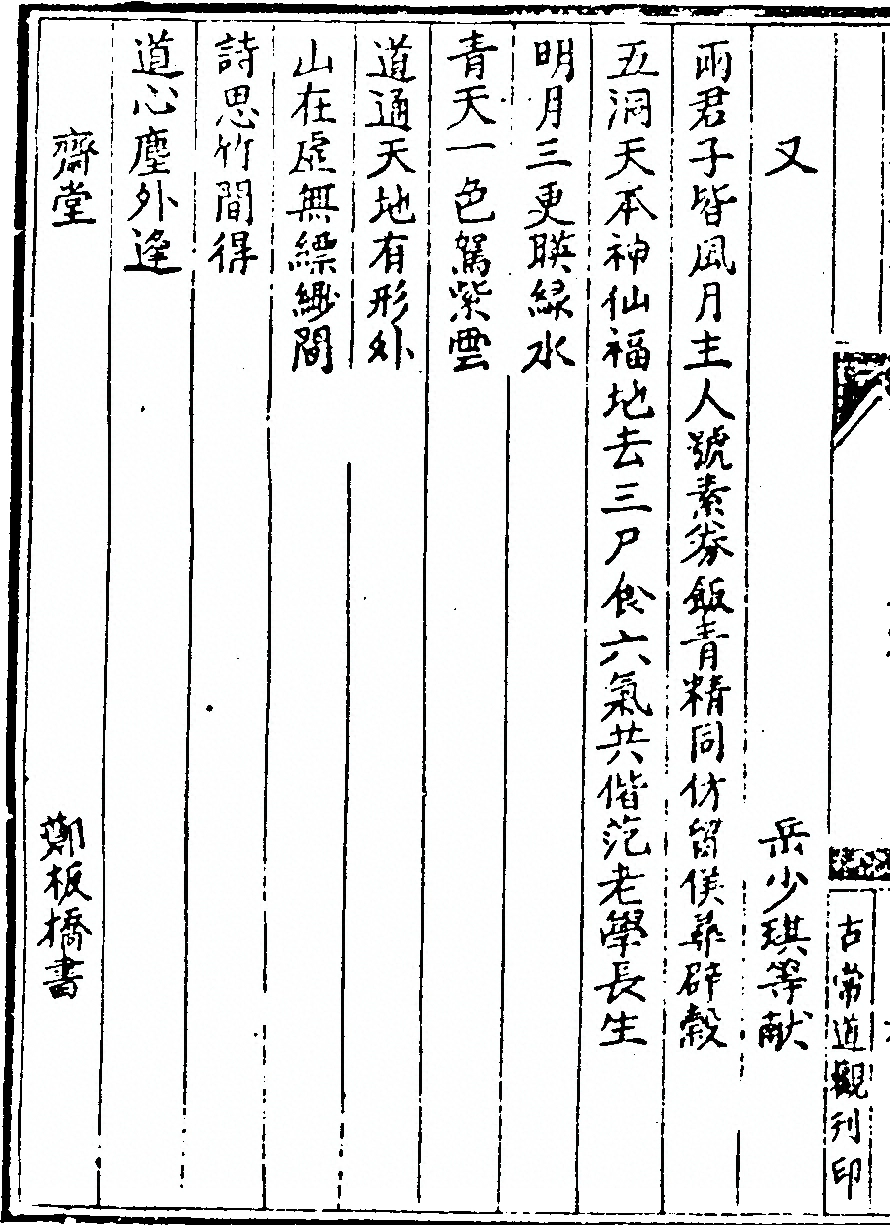 又　岳少琪等献
兩君子皆風月主人號素劵飯青精同仿留侯辭辟穀
五洞天本神仙福地去三尸食六氣共偕范老學長生
明月三更暎綠水
青天一色駕紫雲
道通天地有形外
山在虛無縹緲間
詩思竹間得
道心塵外逢
齋堂　鄭板橋書
古常道觀刊印